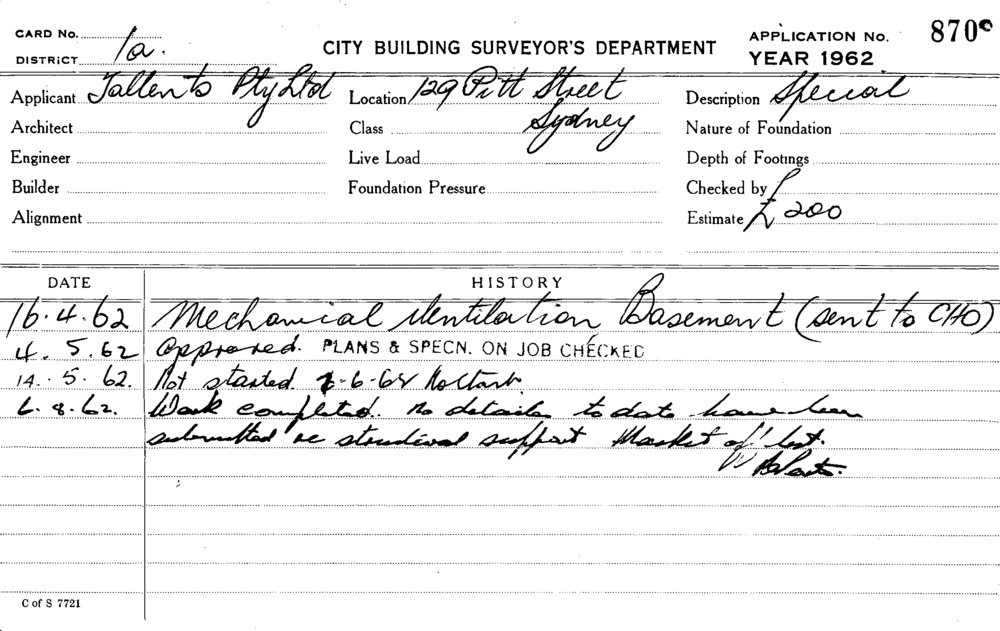 CARD No.
DISTRICT 1a.
CITY BUILDING SURVEYOR'S DEPARTMENT
APPLICATION No. 870
YEAR 1962
Applicant Tallents Pty Ltd
Location 129 Pitt Street
Sydney
Description Special
Architect
Class
Nature of Foundation
Engineer
Live Load
Depth of Footings
Builder
Foundation Pressure
Checked by
Alignment
Estimate £ 200
DATE HISTORY
16.4.62 Mechanical Ventilation Basement (sent to CHO)
4.5.62 Approved. PLANS & SPECN. ON JOB CHECKED
14.5.62. Not started. -6-62 No start.
6.8.62. Work completed. no details to date have been
submitted re structural support
C of S 7721